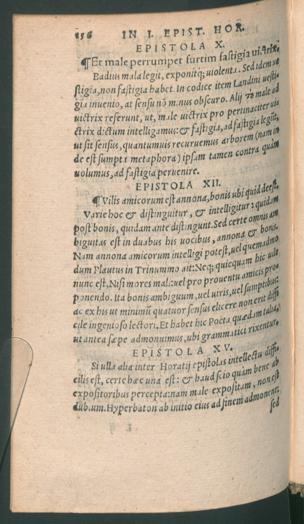 156 IN I. EPIST. HOR.
EPISTOLA X.
¶Et male perrumpet furtim fastigia
Badius mala legit, exponitq; uiolenta. Sed idem
stigia, non fastigia habet. In codice item Landini uesti-
gia inuenio, at sensu nõ minus obscuro. Alij
uictrix referunt, ut, male uictrix pro pertinaciter
ctrix dictum intelligamus: & fastigia, ad fastigia
ut sit sensus, quantumuis recuruemus arborem (nam
de est sumpta metaphora) ipsam tamen contra quàm
uolumus, ad fastigia peruenire.
EPISTOLA XII.
¶Vilis amicorum est annona, bonis ubi quid deest.
Varie hoc & distinguitur, & intelligitur: quidam
post bonis, quidam ante distingunt. Sed certe omnis am
biguitas est in duabus his uocibus, annona & bonis.
Nam annona amicorum intelligi potest, uel
dum Plautus in Trinummo ait: Neq; quicquam hic uile
nunc est, Nisi mores mali: uel pro prouentu amicis
ponendo. Ita bonis ambiguum, uel uiris, uel
ac ex his ut minimũ quatuor sensus elicere non erit diffi-
cile ingenioso lectori, Et habet hic Poëta quædam
ut antea sæpe admonuimus, ubi grammatici rixentur.
EPISTOLA XV.
Si ulla alia inter Horatij epistolas intellectu diffi-
cilis est, certe hæc una est: & haud scio quàm bene ab
expositoribus perceptã nam male expositam, non est
dubium. Hyperbaton ab initio eius ad finem admonent.
sed